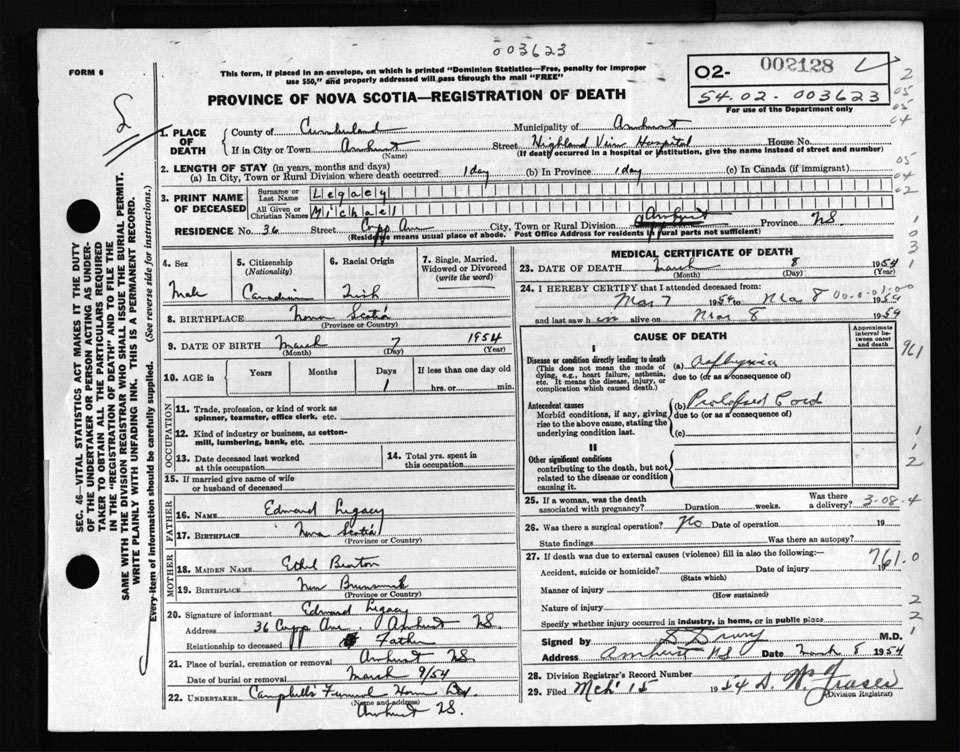 003623
FORM 6
This form, if placed in an envelope, on which is printed "Dominion Statistics—Free, penalty for improper
use $50," and properly addressed will pass through the mail "FREE"
02- 002128
54.02-003623
For use of the Department only
PROVINCE OF NOVA SCOTIA—REGISTRATION OF DEATH
1. PLACE OF DEATH
County of Cumberland Municipality of Amherst
If in City or Town Amherst Street Highland View Hospital House No.
(Name) (If death occurred in a hospital or institution, give the name instead of street and number)
2. LENGTH OF STAY (in years, months and days)
(a) In City, Town or Rural Division where death occurred 1 day (b) In Province 1 day (c) In Canada (if immigrant)
3. PRINT NAME OF DECEASED
Surname or Last Name Legacy
All Given or Christian Names Michael
RESIDENCE No. 36 Street Copp Ave City, Town or Rural Division Amherst Province NS
(Residence means usual place of abode. Post Office Address for residents in rural parts not sufficient)
4. Sex
Male
5. Citizenship
(Nationality)
Canadian
6. Racial Origin
Irish
7. Single, Married,
Widowed or Divorced
(write the word)
8. BIRTHPLACE Nova Scotia
(Province or Country)
9. DATE OF BIRTH March 7 1954
(Month) (Day) (Year)
10. AGE in
Years Months Days
1
If less than one day old
hrs. or min.
OCCUPATION
11. Trade, profession, or kind of work as
spinner, teamster, office clerk, etc.
12. Kind of industry or business, as cotton-
mill, lumbering, bank, etc.
13. Date deceased last worked
at this occupation
14. Total yrs. spent in
this occupation
15. If married give name of wife
or husband of deceased
FATHER
16. NAME Edward Legacy
17. BIRTHPLACE Nova Scotia
(Province or Country)
MOTHER
18. MAIDEN NAME Ethel
19. BIRTHPLACE New Brunswick
(Province or Country)
20. Signature of informant Edward Legacy
Address 36 Copp Ave. Amherst NS.
Relationship to deceased Father
21. Place of burial, cremation or removal Amherst NS
Date of burial or removal March 9/54
22. UNDERTAKER Campbell's Funeral Home
(Name and address)
Amherst NS.
MEDICAL CERTIFICATE OF DEATH
23. DATE OF DEATH March 8 1954
(Month) (Day) (Year)
24. I HEREBY CERTIFY that I attended deceased from:
Mar 7 1954 to Mar 8 1954
and last saw h im alive on Mar 8 1954
CAUSE OF DEATH
Approximate
interval be-
tween onset
and death
I
Disease or condition directly leading to death
(This does not mean the mode of
dying, e.g., heart failure, asthenia,
etc. It means the disease, injury, or
complication which caused death.)
(a) Asphyxia
due to (or as a consequence of)
Antecedent causes
Morbid conditions, if any, giving
rise to the above cause, stating the
underlying condition last.
(b) Prolapsed Cord
due to (or as a consequence of)
(c)
II
Other significant conditions
contributing to the death, but not
related to the disease or condition
causing it.
25. If a woman, was the death
associated with pregnancy? Duration weeks. Was there
a delivery? 3-08-4
26. Was there a surgical operation? No Date of operation 19
State findings Was there an autopsy?
27. If death was due to external causes (violence) fill in also the following:—
Accident, suicide or homicide? Date of injury 761.0
(State which)
Manner of injury
(How sustained)
Nature of injury
Specify whether injury occurred in industry, in home, or in public place
Signed by D Drury M.D.
Address Amherst NS Date March 8 1954
28. Division Registrar's Record Number
29. Filed Mch 15 1954 D. W. Fraser
(Division Registrar)
SEC. 46—VITAL STATISTICS ACT MAKES IT THE DUTY
OF THE UNDERTAKER OR PERSON ACTING AS UNDER-
TAKER TO OBTAIN ALL THE PARTICULARS REQUIRED
IN THE "REGISTRATION OF DEATH" AND TO FILE THE
SAME WITH THE DIVISION REGISTRAR WHO SHALL ISSUE THE BURIAL PERMIT.
WRITE PLAINLY WITH UNFADING INK. THIS IS A PERMANENT RECORD.
Every item of information should be carefully supplied. (See reverse side for instructions.)